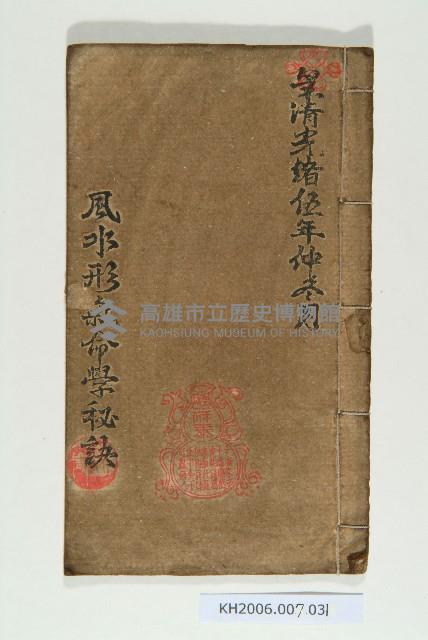 皇清光緒伍年仲冬月
風水形家命學秘訣
高雄市立歷史博物館
KAOHSIUNG MUSEUM OF HISTORY
KH2006.007.031